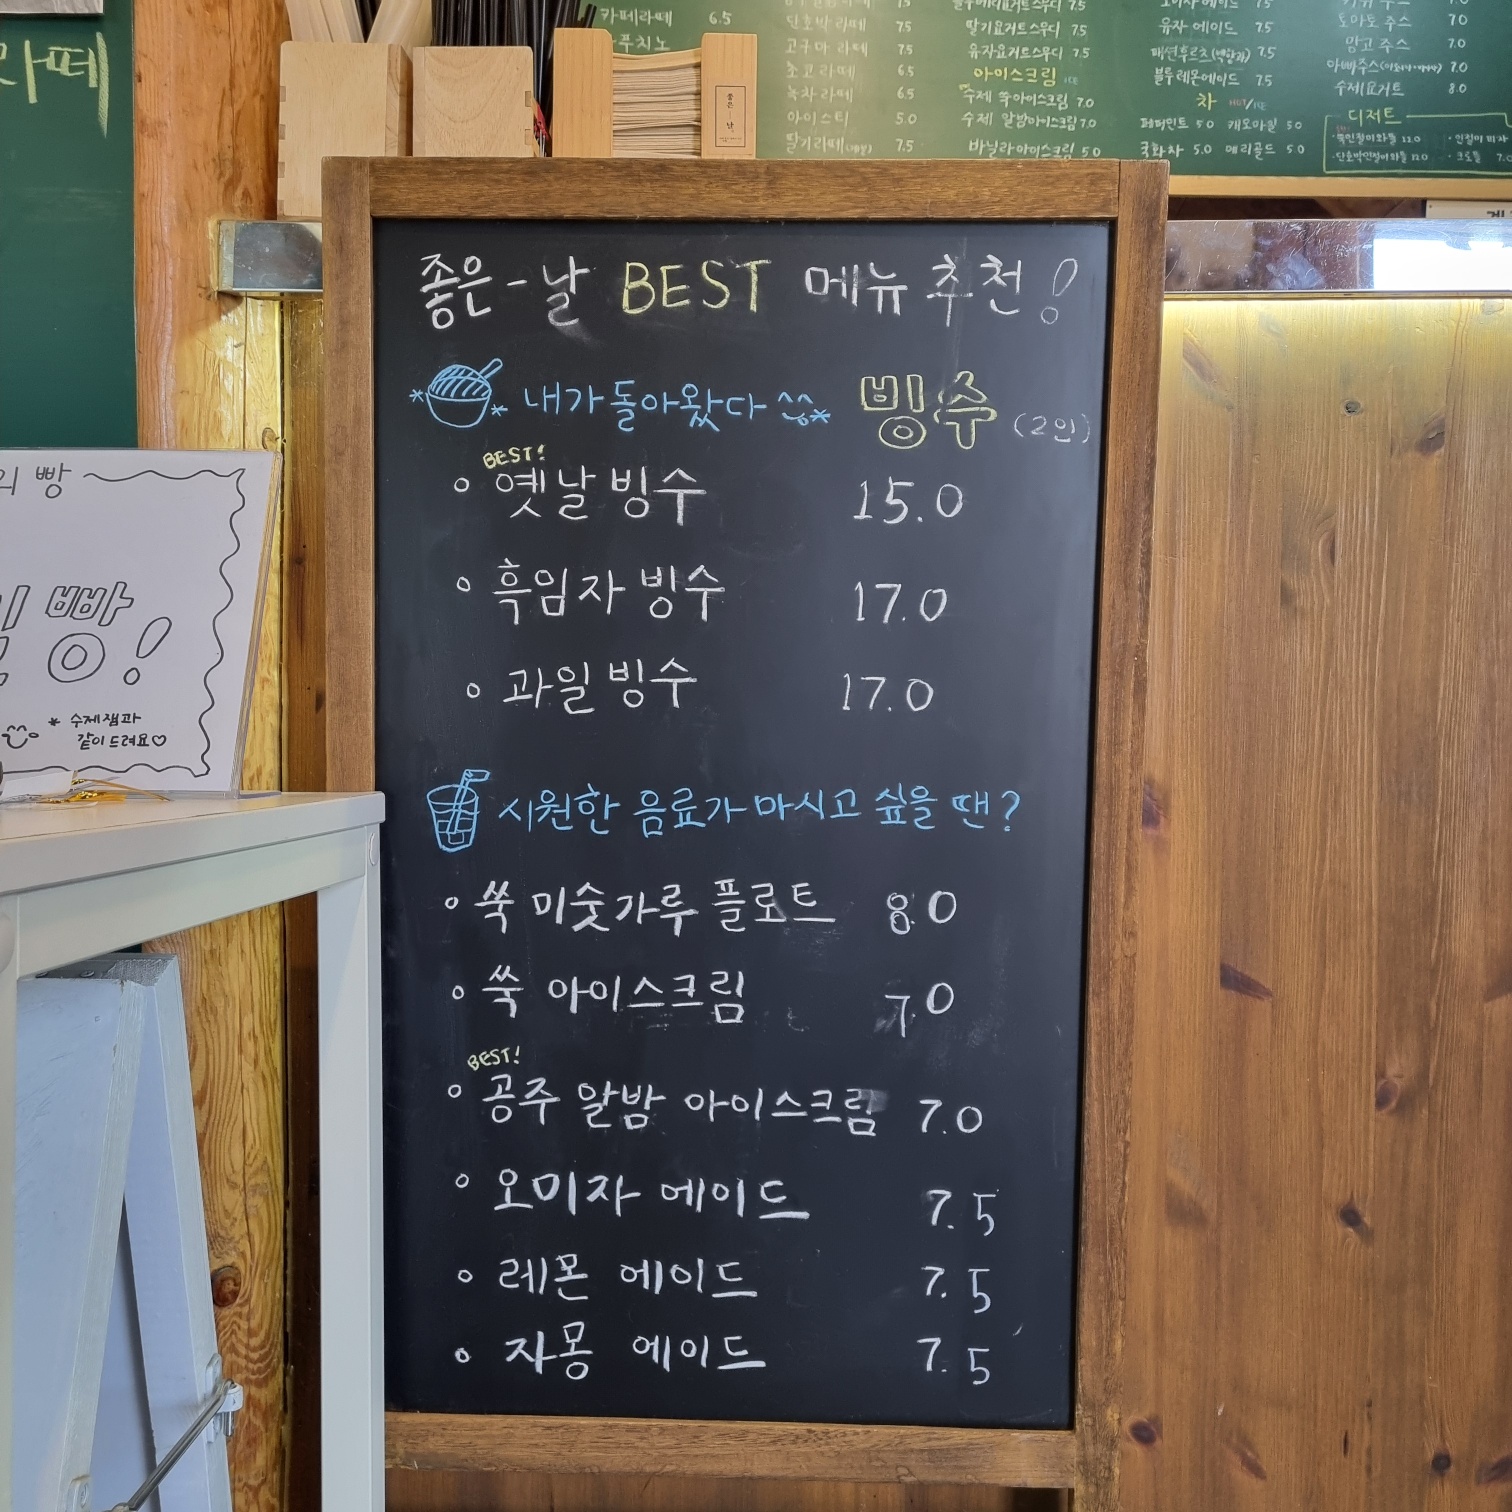 라떼
카페라떼 6.5
푸치노
단호박라떼 7.5
고구마 라떼 7.5
초코라떼 6.5
녹차라떼 6.5
아이스티 5.0
딸기라떼 7.5
딸기요거트스무디 7.5
유자요거트스무디 7.5
아이스크림 ICE
수제 쑥아이스크림 7.0
수제 알밤아이스크림 7.0
바닐라아이스크림 5.0
오미자 에이드 7.5
유자 에이드 7.5
블루레몬에이드 7.5
차 HOT/ICE
페퍼민트 5.0 캐모마일 5.0
국화차 5.0 메리골드 5.0
토마토 주스 7.0
망고 주스 7.0
수제요거트 8.0
디저트
좋은-날 BEST 메뉴 추천!
내가 돌아왔다 ^^ 빙수 (2인)
BEST!
옛날 빙수 15.0
흑임자 빙수 17.0
과일 빙수 17.0
시원한 음료가 마시고 싶을 땐?
쑥 미숫가루 플로트 8.0
쑥 아이스크림 7.0
BEST!
공주 알밤 아이스크림 7.0
오미자 에이드 7.5
레몬 에이드 7.5
자몽 에이드 7.5
의 빵
빵!
* 수제잼과
같이 드려요♡